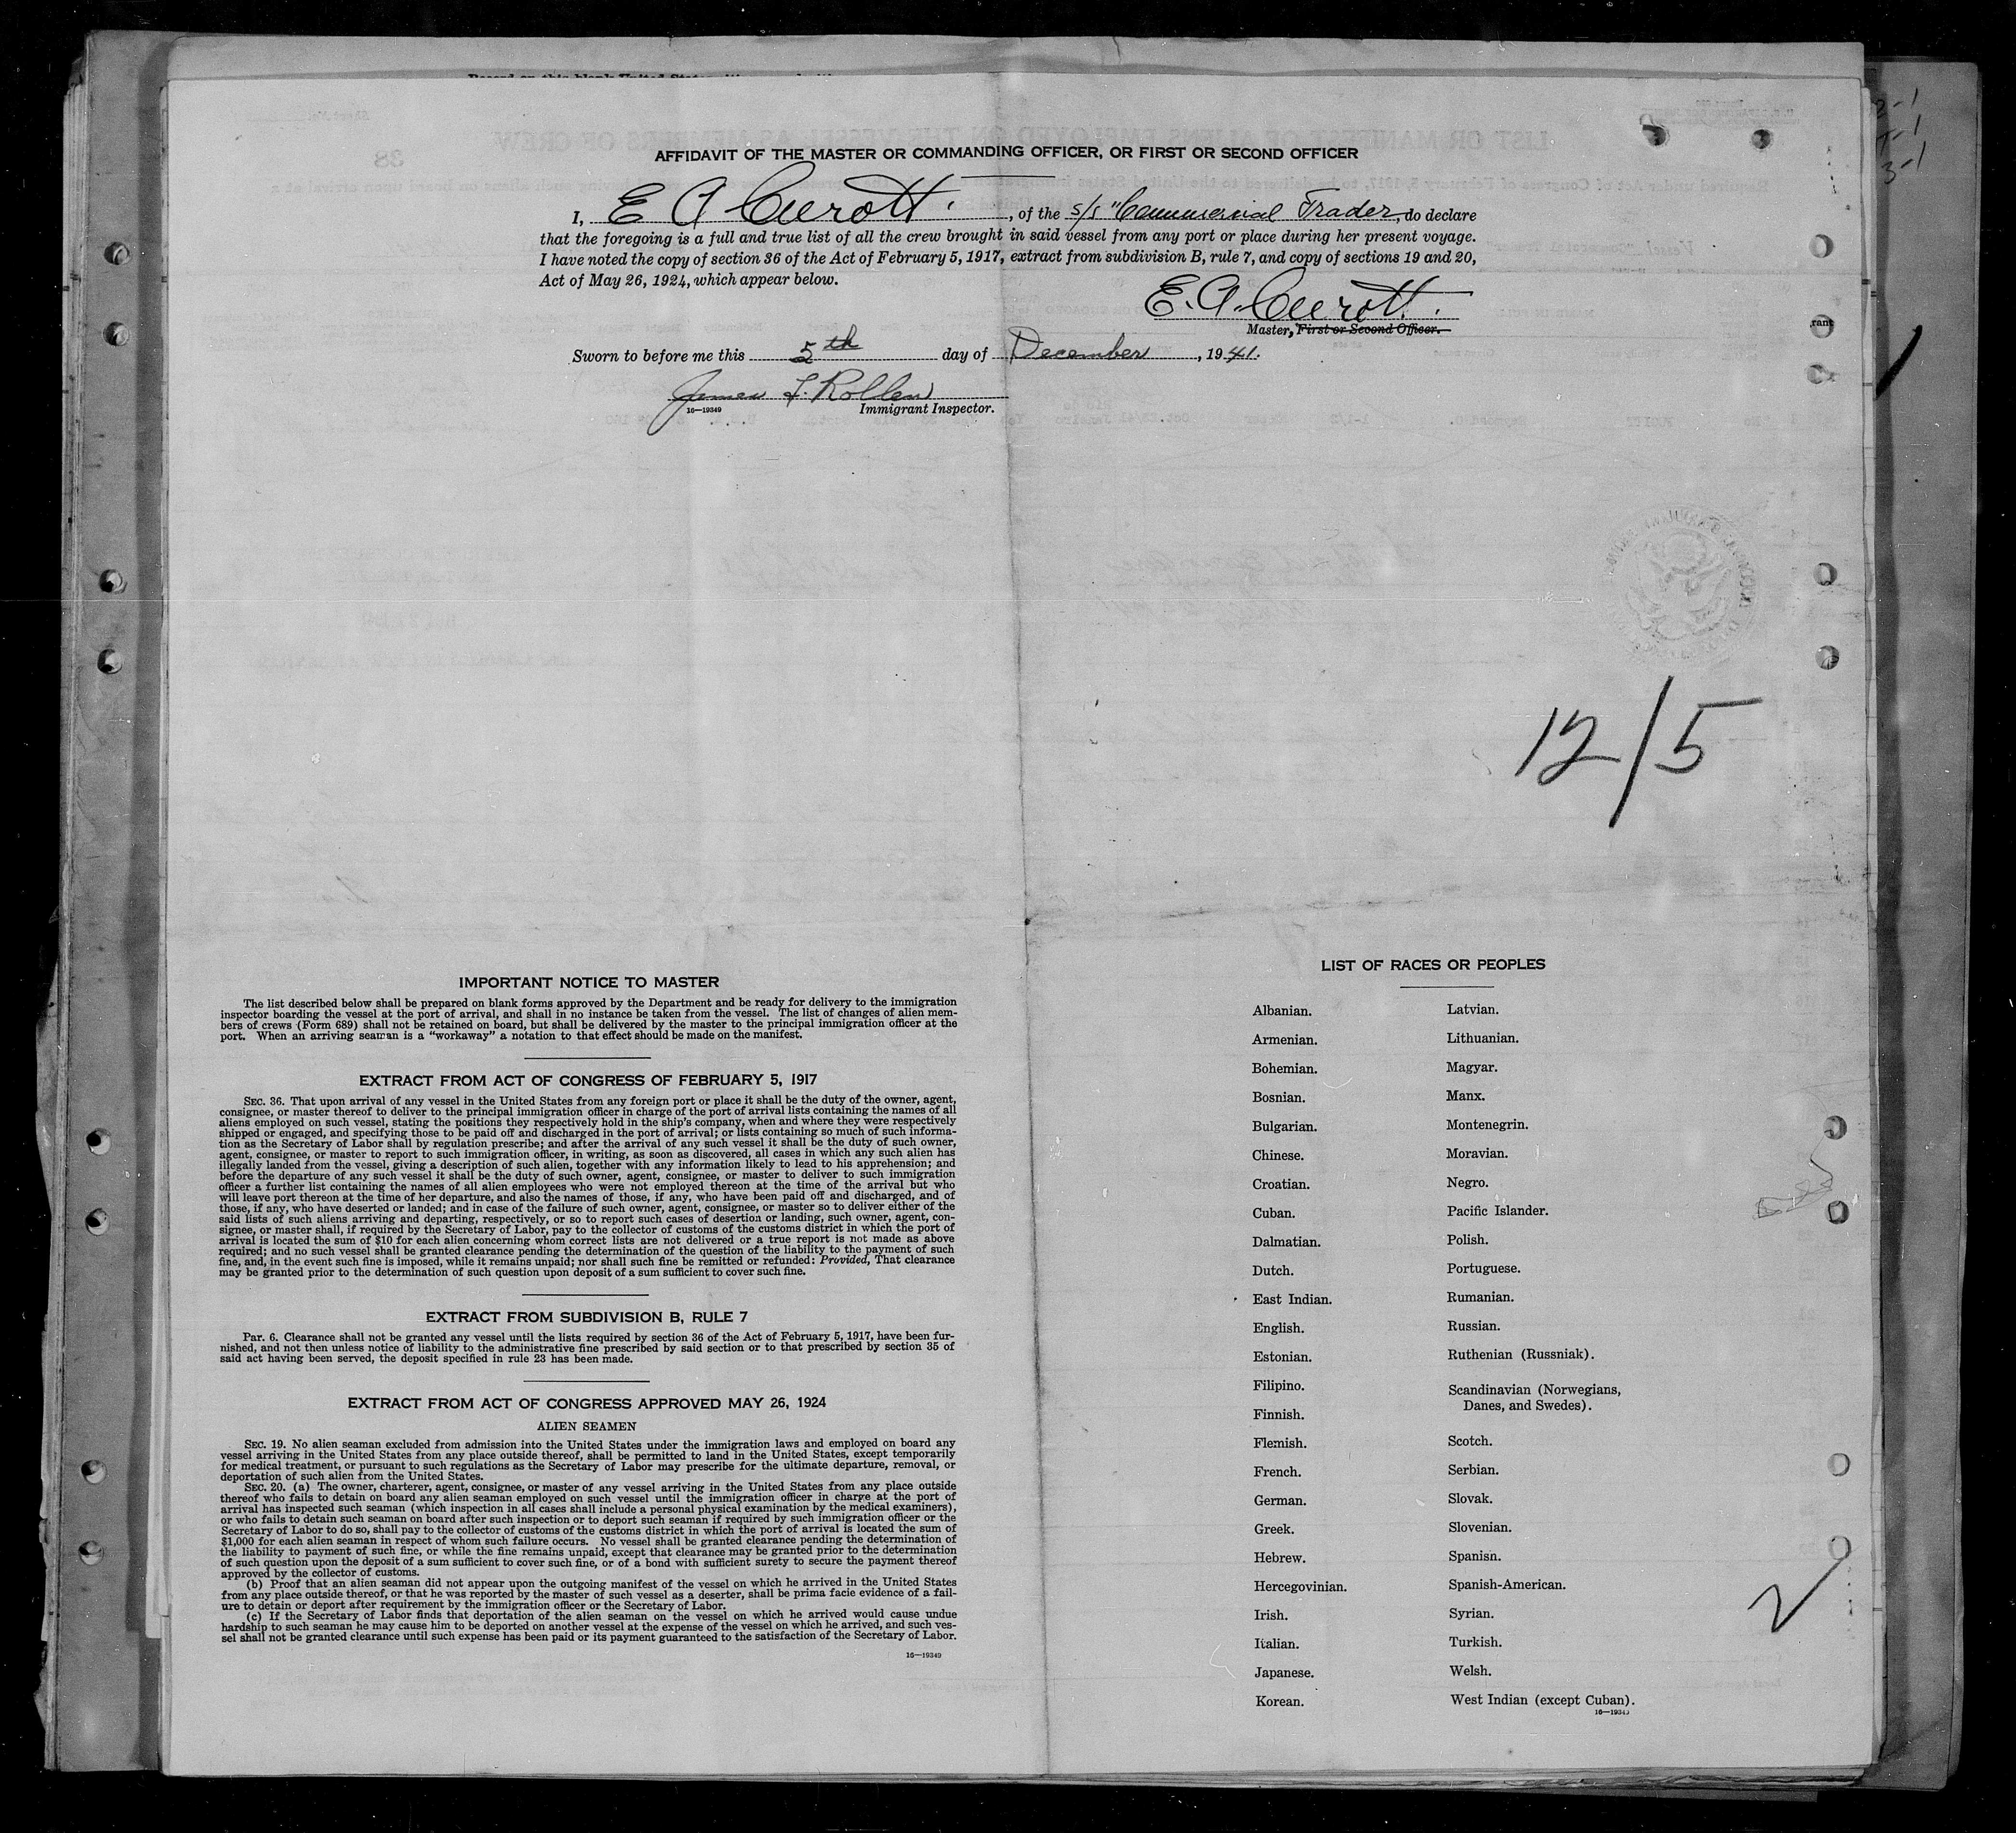 AFFIDAVIT OF THE MASTER OR COMMANDING OFFICER, OR FIRST OR SECOND OFFICER
I, E A Curott., of the s/s "Commercial Trader, do declare
that the foregoing is a full and true list of all the crew brought in said vessel from any port or place during her present voyage.
I have noted the copy of section 36 of the Act of February 5, 1917, extract from subdivision B, rule 7, and copy of sections 19 and 20,
Act of May 26, 1924, which appear below.
E. A. Curott.
Master, First or Second Officer.
Sworn to before me this 5th day of December, 1941.
James F. Rollen
16—19349 Immigrant Inspector.
12/5
IMPORTANT NOTICE TO MASTER
The list described below shall be prepared on blank forms approved by the Department and be ready for delivery to the immigration
inspector boarding the vessel at the port of arrival, and shall in no instance be taken from the vessel. The list of changes of alien mem-
bers of crews (Form 689) shall not be retained on board, but shall be delivered by the master to the principal immigration officer at the
port. When an arriving seaman is a “workaway” a notation to that effect should be made on the manifest.
EXTRACT FROM ACT OF CONGRESS OF FEBRUARY 5, 1917
SEC. 36. That upon arrival of any vessel in the United States from any foreign port or place it shall be the duty of the owner, agent,
consignee, or master thereof to deliver to the principal immigration officer in charge of the port of arrival lists containing the names of all
aliens employed on such vessel, stating the positions they respectively hold in the ship's company, when and where they were respectively
shipped or engaged, and specifying those to be paid off and discharged in the port of arrival; or lists containing so much of such informa-
tion as the Secretary of Labor shall by regulation prescribe; and after the arrival of any such vessel it shall be the duty of such owner,
agent, consignee, or master to report to such immigration officer, in writing, as soon as discovered, all cases in which any such alien has
illegally landed from the vessel, giving a description of such alien, together with any information likely to lead to his apprehension; and
before the departure of any such vessel it shall be the duty of such owner, agent, consignee, or master to deliver to such immigration
officer a further list containing the names of all alien employees who were not employed thereon at the time of the arrival but who
will leave port thereon at the time of her departure, and also the names of those, if any, who have been paid off and discharged, and of
those, if any, who have deserted or landed; and in case of the failure of such owner, agent, consignee, or master so to deliver either of the
said lists of such aliens arriving and departing, respectively, or so to report such cases of desertion or landing, such owner, agent, con-
signee, or master shall, if required by the Secretary of Labor, pay to the collector of customs of the customs district in which the port of
arrival is located the sum of $10 for each alien concerning whom correct lists are not delivered or a true report is not made as above
required; and no such vessel shall be granted clearance pending the determination of the question of the liability to the payment of such
fine, and, in the event such fine is imposed, while it remains unpaid; nor shall such fine be remitted or refunded: Provided, That clearance
may be granted prior to the determination of such question upon deposit of a sum sufficient to cover such fine.
EXTRACT FROM SUBDIVISION B, RULE 7
Par. 6. Clearance shall not be granted any vessel until the lists required by section 36 of the Act of February 5, 1917, have been fur-
nished, and not then unless notice of liability to the administrative fine prescribed by said section or to that prescribed by section 35 of
said act having been served, the deposit specified in rule 23 has been made.
EXTRACT FROM ACT OF CONGRESS APPROVED MAY 26, 1924
ALIEN SEAMEN
SEC. 19. No alien seaman excluded from admission into the United States under the immigration laws and employed on board any
vessel arriving in the United States from any place outside thereof, shall be permitted to land in the United States, except temporarily
for medical treatment, or pursuant to such regulations as the Secretary of Labor may prescribe for the ultimate departure, removal, or
deportation of such alien from the United States.
SEC. 20. (a) The owner, charterer, agent, consignee, or master of any vessel arriving in the United States from any place outside
thereof who fails to detain on board any alien seaman employed on such vessel until the immigration officer in charge at the port of
arrival has inspected such seaman (which inspection in all cases shall include a personal physical examination by the medical examiners),
or who fails to detain such seaman on board after such inspection or to deport such seaman if required by such immigration officer or the
Secretary of Labor to do so, shall pay to the collector of customs of the customs district in which the port of arrival is located the sum of
$1,000 for each alien seaman in respect of whom such failure occurs. No vessel shall be granted clearance pending the determination of
the liability to payment of such fine, or while the fine remains unpaid, except that clearance may be granted prior to the determination
of such question upon the deposit of a sum sufficient to cover such fine, or of a bond with sufficient surety to secure the payment thereof
approved by the collector of customs.
(b) Proof that an alien seaman did not appear upon the outgoing manifest of the vessel on which he arrived in the United States
from any place outside thereof, or that he was reported by the master of such vessel as a deserter, shall be prima facie evidence of a fail-
ure to detain or deport after requirement by the immigration officer or the Secretary of Labor.
(c) If the Secretary of Labor finds that deportation of the alien seaman on the vessel on which he arrived would cause undue
hardship to such seaman he may cause him to be deported on another vessel at the expense of the vessel on which he arrived, and such ves-
sel shall not be granted clearance until such expense has been paid or its payment guaranteed to the satisfaction of the Secretary of Labor.
16—19349
LIST OF RACES OR PEOPLES
Albanian.
Armenian.
Bohemian.
Bosnian.
Bulgarian.
Chinese.
Croatian.
Cuban.
Dalmatian.
Dutch.
East Indian.
English.
Estonian.
Filipino.
Finnish.
Flemish.
French.
German.
Greek.
Hebrew.
Hercegovinian.
Irish.
Italian.
Japanese.
Korean.
Latvian.
Lithuanian.
Magyar.
Manx.
Montenegrin.
Moravian.
Negro.
Pacific Islander.
Polish.
Portuguese.
Rumanian.
Russian.
Ruthenian (Russniak).
Scandinavian (Norwegians,
Danes, and Swedes).
Scotch.
Serbian.
Slovak.
Slovenian.
Spanish.
Spanish-American.
Syrian.
Turkish.
Welsh.
West Indian (except Cuban).
16—19349
2